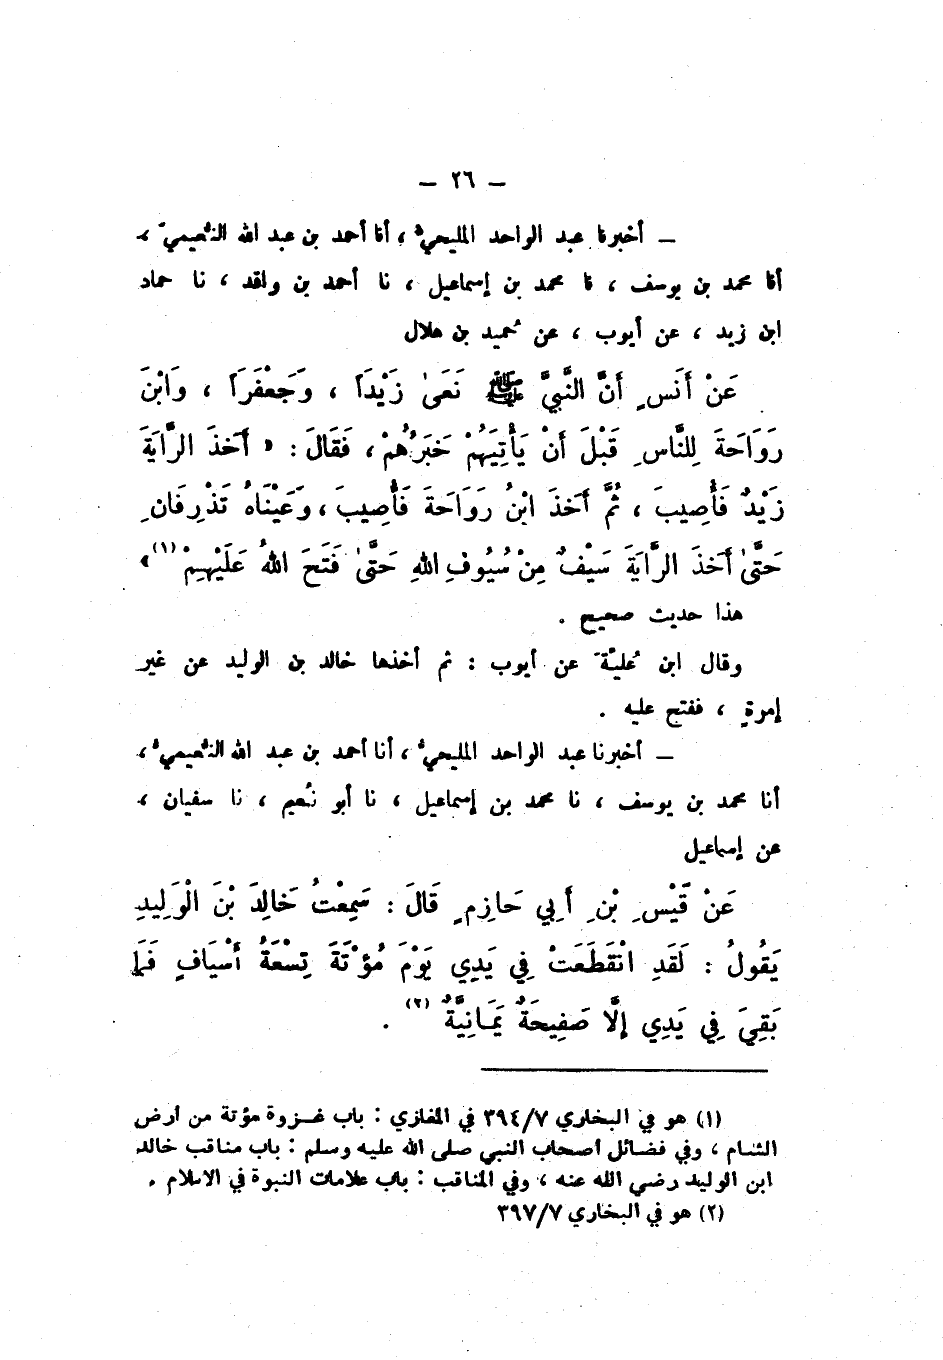 — ٢٦ —
— أخبرنا عبد الواحد المليحيُّ ، أنا أحمد بن عبد الله النُّعيميُّ ،
أنا محمد بن يوسف ، نا محمد بن إسماعيل ، نا أحمد بن واقد ، نا حماد
ابن زيد ، عن أيوب ، عن حُميد بن هلال
عَنْ أَنَسٍ أَنَّ النَّبِيَّ ﷺ نَعَىٰ زَيْدَاً ، وَجَعْفَرَاً ، وَابْنَ
رَوَاحَةَ لِلنَّاسِ قَبْلَ أَنْ يَأْتِيَهُمْ خَبَرُهُمْ ، فَقَالَ : « أَخَذَ الرَّايَةَ
زَيْدٌ فَأُصِيبَ ، ثُمَّ أَخَذَ ابْنُ رَوَاحَةَ فَأُصِيبَ ، وَعَيْنَاهُ تَذْرِفَانِ
حَتَّىٰ أَخَذَ الرَّايَةَ سَيْفٌ مِنْ سُيُوفِ اللهِ حَتَّىٰ فَتَحَ اللهُ عَلَيْهِمْ (١) »
هذا حديث صحيح .
وقال ابن عُليَّة عن أيوب : ثم أخذها خالد بن الوليد عن غير
إمرةٍ ، ففتح عليه .
— أخبرنا عبد الواحد المليحيُّ ، أنا أحمد بن عبد الله النُّعيميُّ ،
أنا محمد بن يوسف ، نا محمد بن إسماعيل ، نا أبو نُعيم ، نا سفيان ،
عن إسماعيل
عَنْ قَيْسِ بْنِ أَبِي حَازِمٍ قَالَ : سَمِعْتُ خَالِدَ بْنَ الْوَلِيدِ
يَقُولُ : لَقَدِ انْقَطَعَتْ فِي يَدِي يَوْمَ مُؤْتَةَ تِسْعَةُ أَسْيَافٍ فَمَا
بَقِيَ فِي يَدِي إِلَّا صَفِيحَةٌ يَمَانِيَّةٌ (٢) .
(١) هو في البخاري ٣٩٤/٧ في المغازي : باب غزوة مؤتة من أرض
الشام ، وفي فضائل أصحاب النبي صلى الله عليه وسلم : باب مناقب خالد
ابن الوليد رضي الله عنه ، وفي المناقب : باب علامات النبوة في الاسلام .
(٢) هو في البخاري ٣٩٧/٧